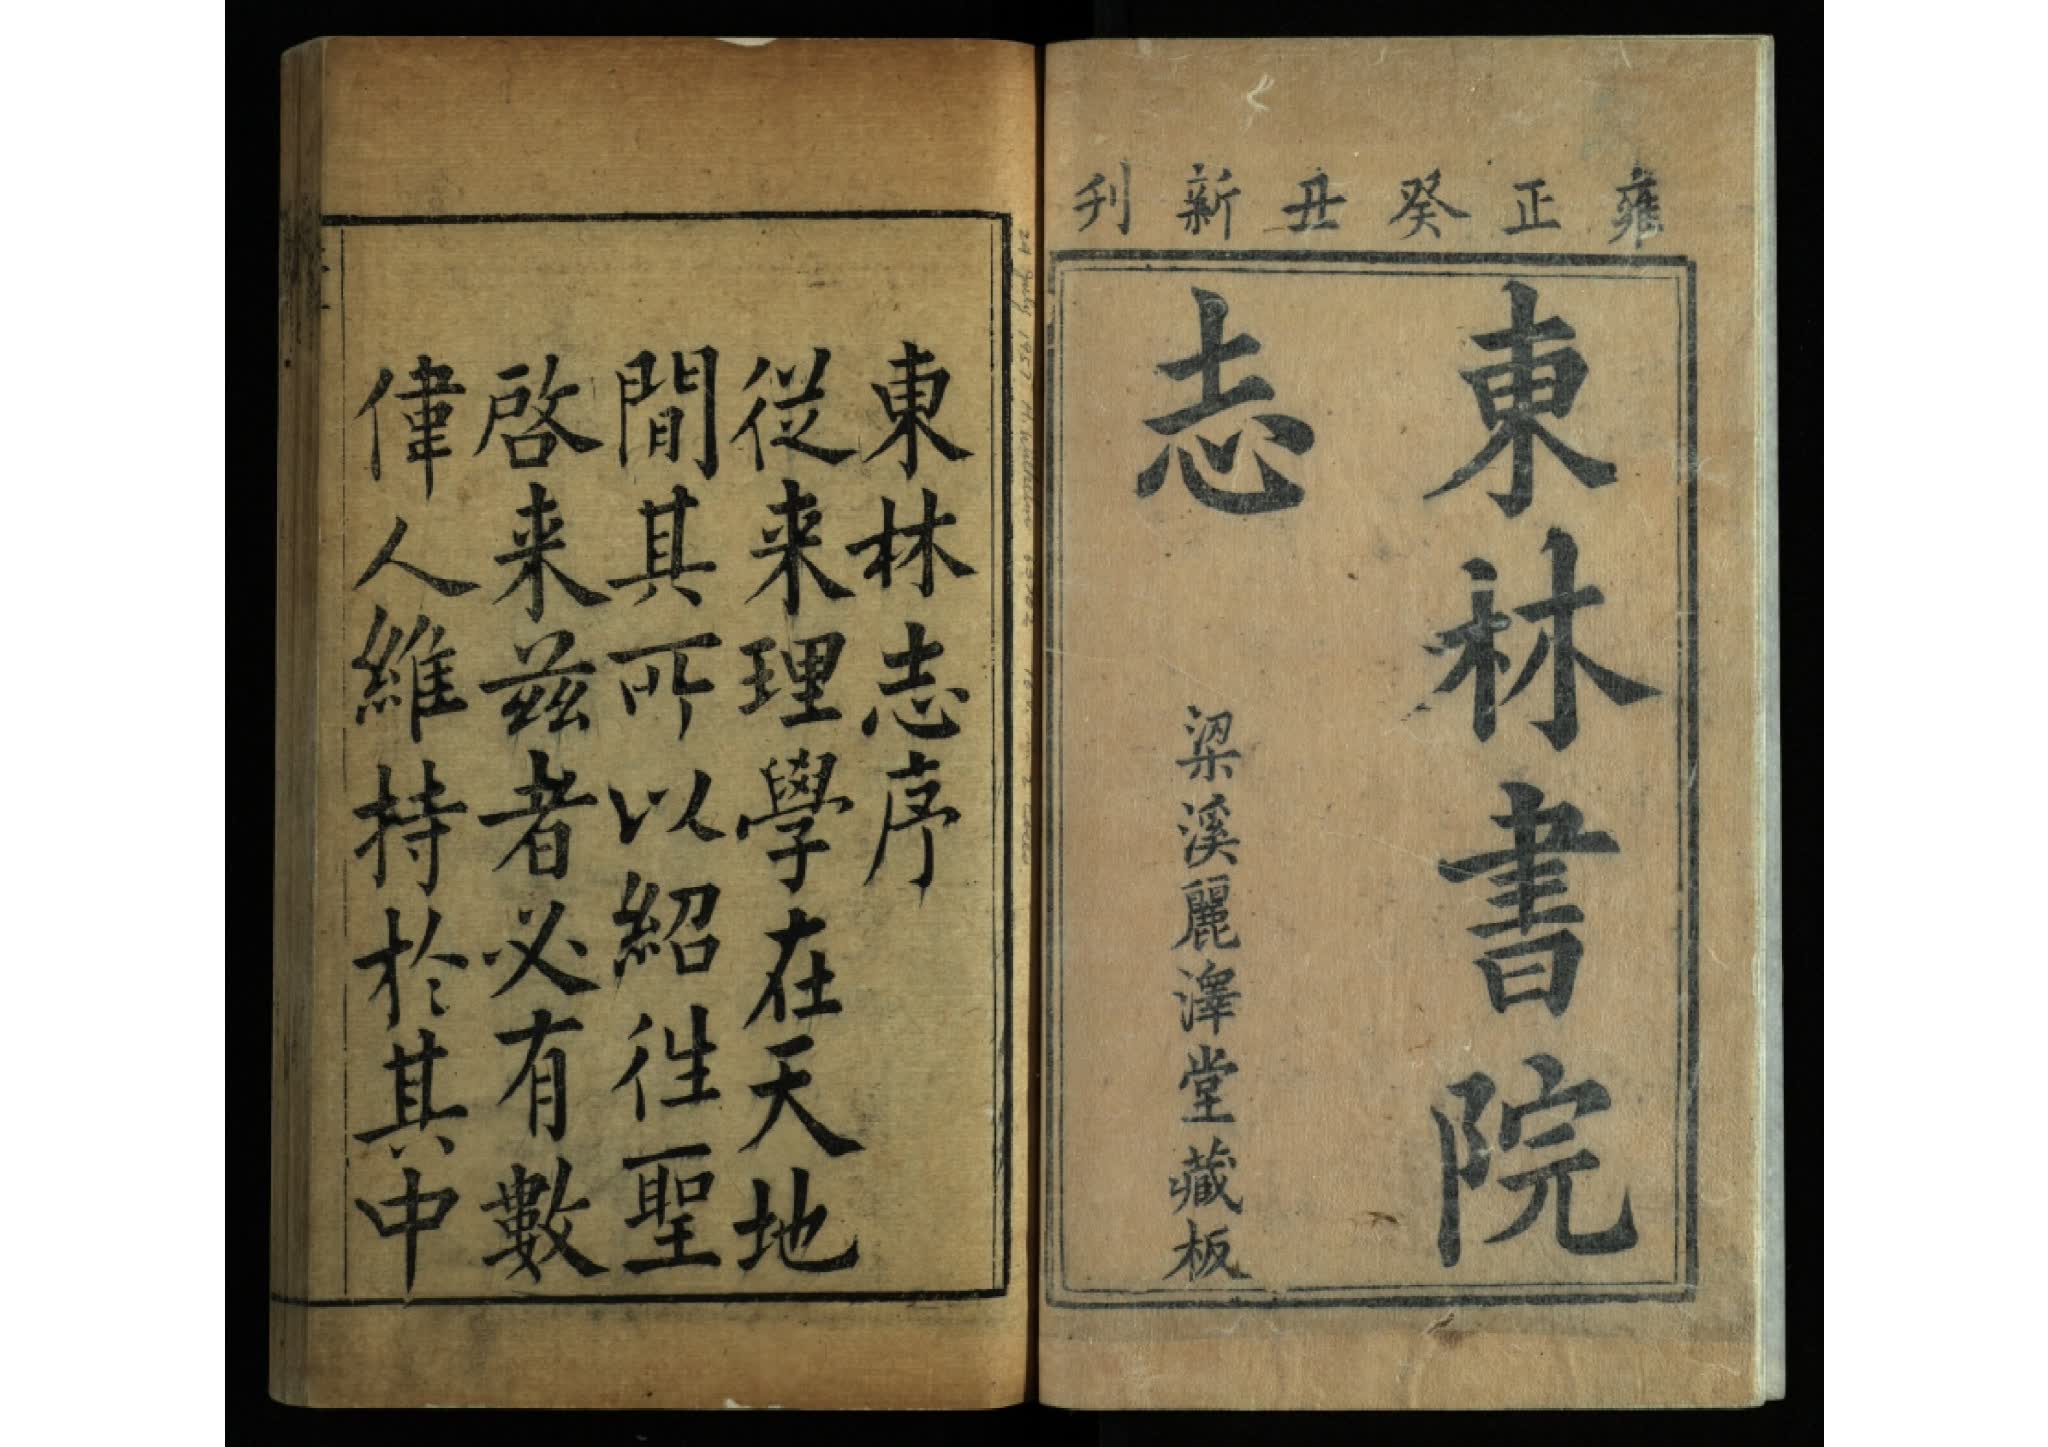 雍正癸丑新刊
東林書院
志
梁溪麗澤堂藏板
東林志序
從来理學在天地
間其所以紹徃聖
啓来兹者必有數
偉人維持於其中
24 July 1957